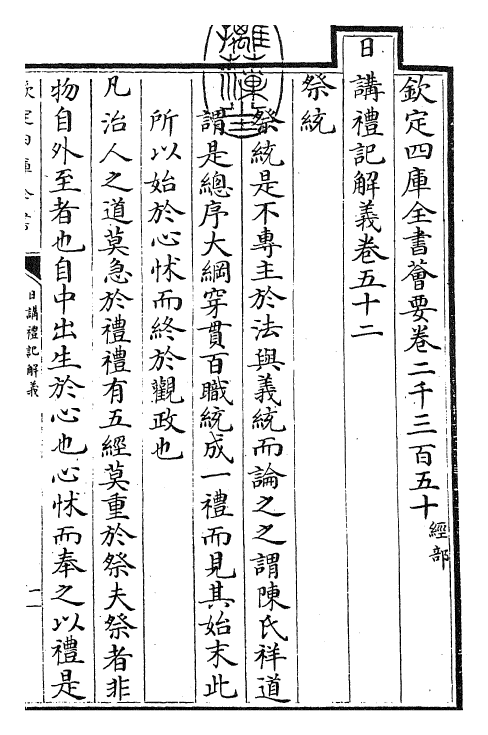 欽定四庫全書薈要卷二千三百五十經部
日講禮記解義卷五十二
祭統
祭統是不專主於法與義統而論之之謂陳氏祥道
謂是總序大綱穿貫百職統成一禮而見其始末此
所以始於心怵而終於觀政也
凡治人之道莫急於禮禮有五經莫重於祭夫祭者非
物自外至者也自中出生於心也心怵而奉之以禮是
日講禮記解義
一